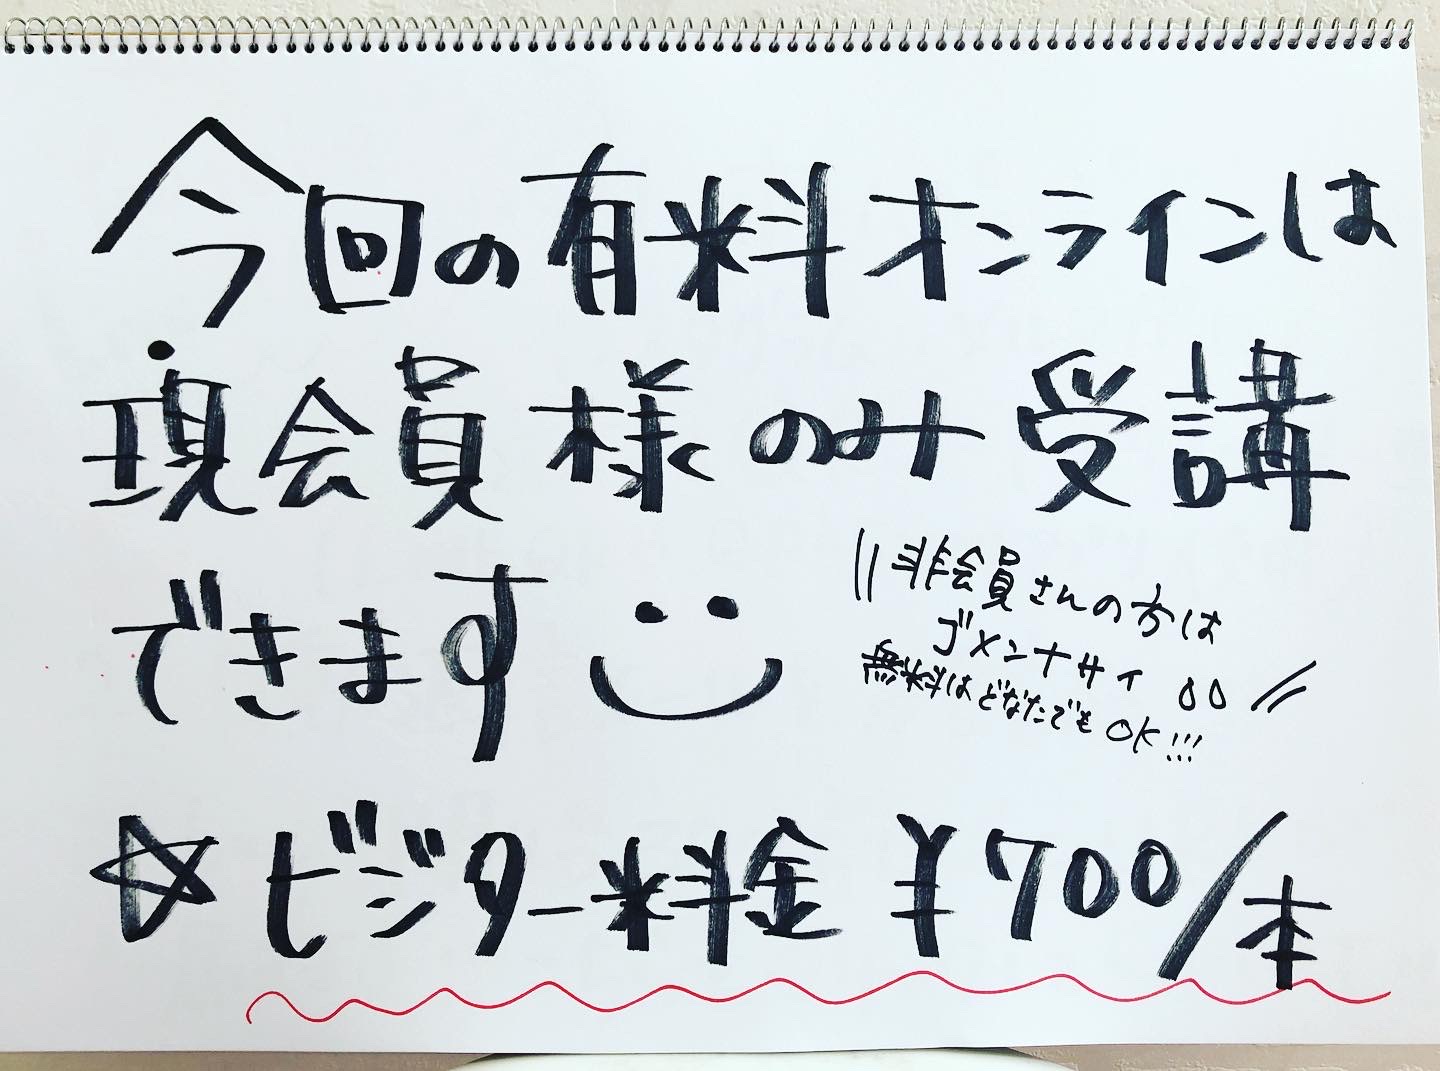 今回の有料オンラインは
現会員様のみ受講
できます
\\非会員さんの方は
ゴメンナサイ
無料はどなたでもOK!!! //
☆ビジター料金 ¥700/本